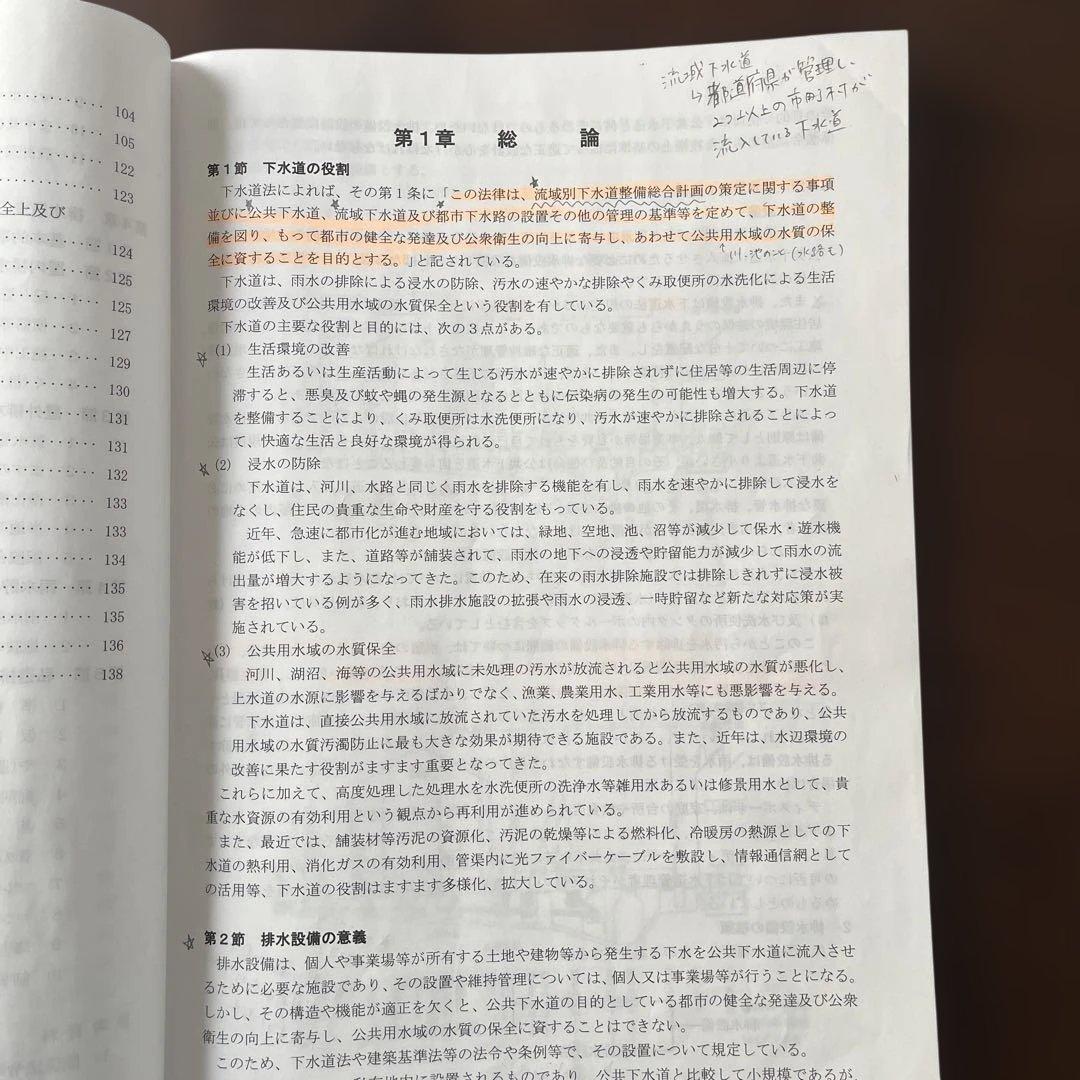 104
105
122
123
全上及び
124
125
125
127
129
130
131
131
132
133
133
134
135
135
136
138
流域下水道
↳都道府県が管理し、
2つ以上の市町村が
流入している下水道
第1章 総 論
第1節 下水道の役割
下水道法によれば、その第1条に「この法律は、流域別下水道整備総合計画の策定に関する事項
並びに公共下水道、流域下水道及び都市下水路の設置その他の管理の基準等を定めて、下水道の整
備を図り、もって都市の健全な発達及び公衆衛生の向上に寄与し、あわせて公共用水域の水質の保
全に資することを目的とする。」と記されている。
↑川、池のこと(水路も)
下水道は、雨水の排除による浸水の防除、汚水の速やかな排除やくみ取便所の水洗化による生活
環境の改善及び公共用水域の水質保全という役割を有している。
下水道の主要な役割と目的には、次の3点がある。
☆(1) 生活環境の改善
生活あるいは生産活動によって生じる汚水が速やかに排除されずに住居等の生活周辺に停
滞すると、悪臭及び蚊や蠅の発生源となるとともに伝染病の発生の可能性も増大する。下水道
を整備することにより、くみ取便所は水洗便所になり、汚水が速やかに排除されることによっ
て、快適な生活と良好な環境が得られる。
☆(2) 浸水の防除
下水道は、河川、水路と同じく雨水を排除する機能を有し、雨水を速やかに排除して浸水を
なくし、住民の貴重な生命や財産を守る役割をもっている。
近年、急速に都市化が進む地域においては、緑地、空地、池、沼等が減少して保水・遊水機
能が低下し、また、道路等が舗装されて、雨水の地下への浸透や貯留能力が減少して雨水の流
出量が増大するようになってきた。このため、在来の雨水排除施設では排除しきれずに浸水被
害を招いている例が多く、雨水排水施設の拡張や雨水の浸透、一時貯留など新たな対応策が実
施されている。
☆(3) 公共用水域の水質保全
河川、湖沼、海等の公共用水域に未処理の汚水が放流されると公共用水域の水質が悪化し、
上水道の水源に影響を与えるばかりでなく、漁業、農業用水、工業用水等にも悪影響を与える。
下水道は、直接公共用水域に放流されていた汚水を処理してから放流するものであり、公共
用水域の水質汚濁防止に最も大きな効果が期待できる施設である。また、近年は、水辺環境の
改善に果たす役割がますます重要となってきた。
これらに加えて、高度処理した処理水を水洗便所の洗浄水等雑用水あるいは修景用水として、貴
重な水資源の有効利用という観点から再利用が進められている。
また、最近では、舗装材等汚泥の資源化、汚泥の乾燥等による燃料化、冷暖房の熱源としての下
水道の熱利用、消化ガスの有効利用、管渠内に光ファイバーケーブルを敷設し、情報通信網として
の活用等、下水道の役割はますます多様化、拡大している。
☆第2節 排水設備の意義
排水設備は、個人や事業場等が所有する土地や建物等から発生する下水を公共下水道に流入させ
るために必要な施設であり、その設置や維持管理については、個人又は事業場等が行うことになる。
しかし、その構造や機能が適正を欠くと、公共下水道の目的としている都市の健全な発達及び公衆
衛生の向上に寄与し、公共用水域の水質の保全に資することはできない。
このため、下水道法や建築基準法等の法令や条例等で、その設置について規定している。
私有地内に設置されるものであり、公共下水道と比較して小規模であるが、